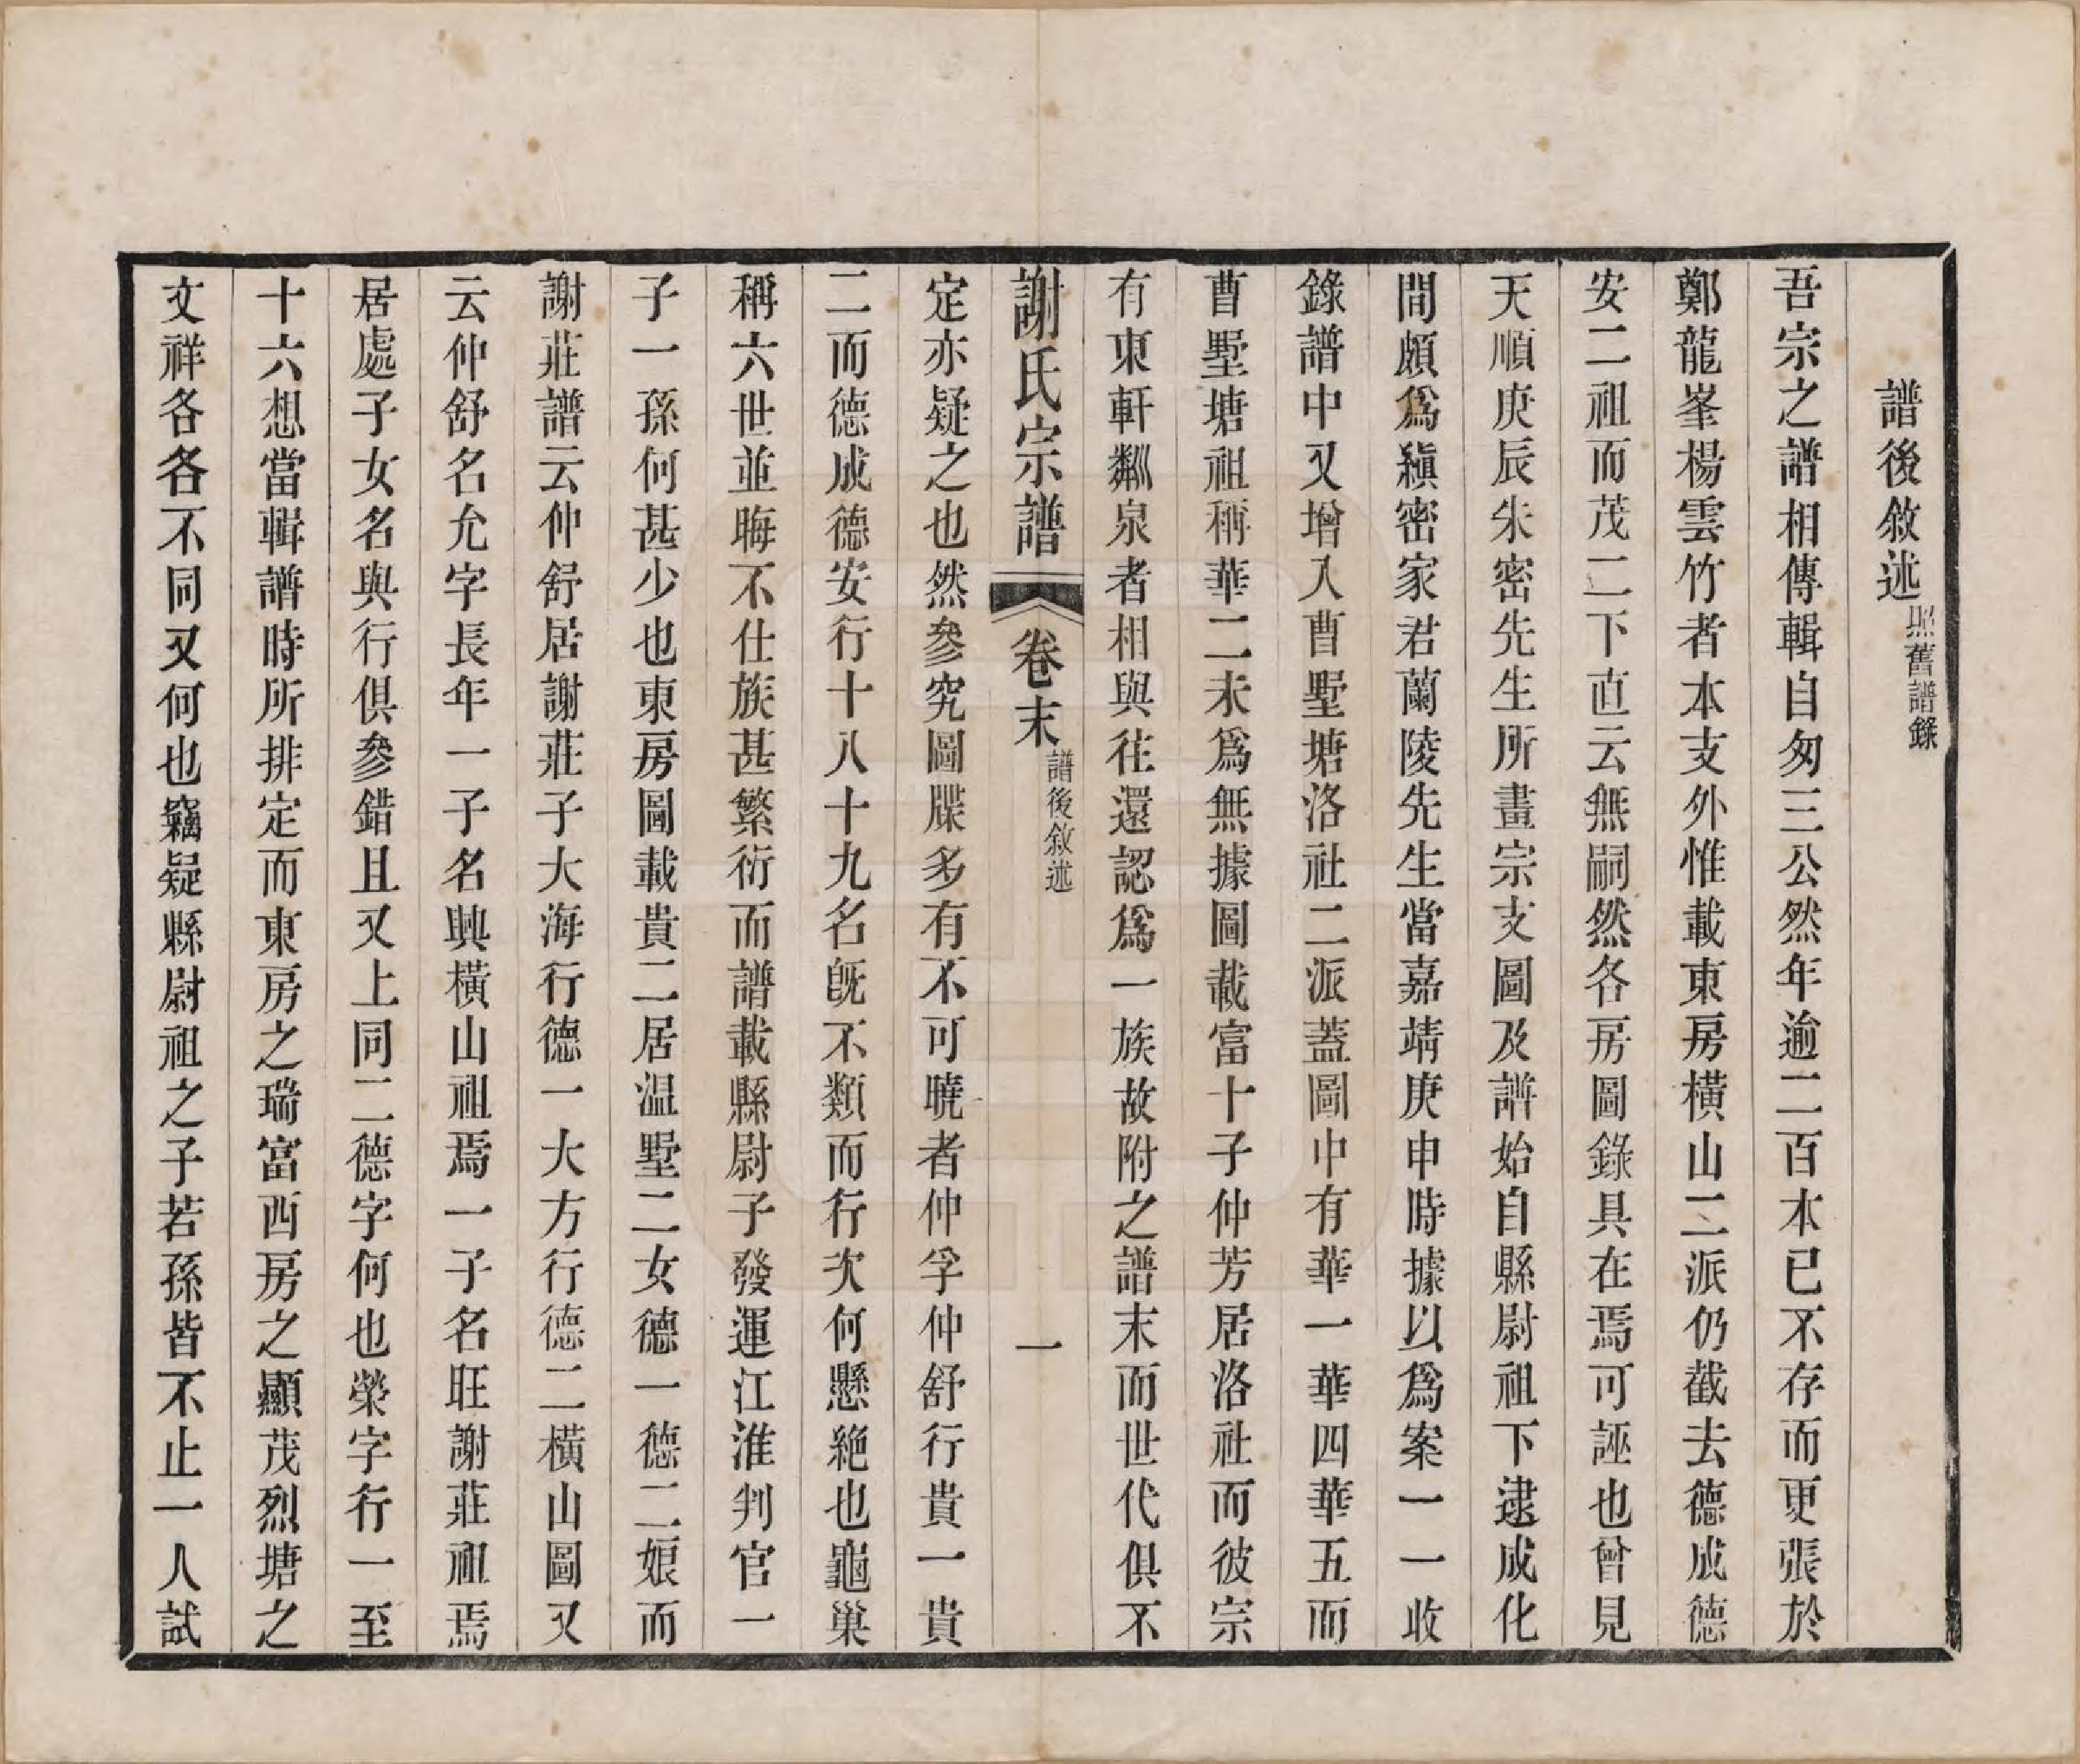 譜後敘述照舊譜錄
吾宗之譜相傳輯自匆三公然年逾二百本已不存而更張於
鄭龍峯楊雲竹者本支外惟載東房橫山二派仍截去德成德
安二祖而茂二下直云無嗣然各房圖錄具在焉可誣也曾見
天順庚辰朱密先生所畫宗支圖及譜始自縣尉祖下逮成化
間頗爲縝密家君蘭陵先生當嘉靖庚申時據以爲案一一收
錄譜中又增入曹墅塘洛社二派蓋圖中有華一華四華五而
曹墅塘祖稱華二未爲無據圖載富十子仲芳居洛社而彼宗
有東軒粼泉者相與往還認爲一族故附之譜末而世代俱不
謝氏宗譜
卷末
譜後敘述
一
定亦疑之也然參究圖牒多有不可曉者仲孚仲舒行貴一貴
二而德成德安行十八十九名旣不類而行次何懸絶也龜巢
稱六世並晦不仕族甚繁衍而譜載縣尉子發運江淮判官一
子一孫何甚少也東房圖載貴二居温墅二女德一德二娘而
謝莊譜云仲舒居謝莊子大海行德一大方行德二橫山圖又
云仲舒名允字長年一子名興橫山祖焉一子名旺謝莊祖焉
居處子女名與行俱參錯且又上同二德字何也榮字行一至
十六想當輯譜時所排定而東房之瑞富西房之顯茂烈塘之
文祥各各不同又何也竊疑縣尉祖之子若孫皆不止一人試